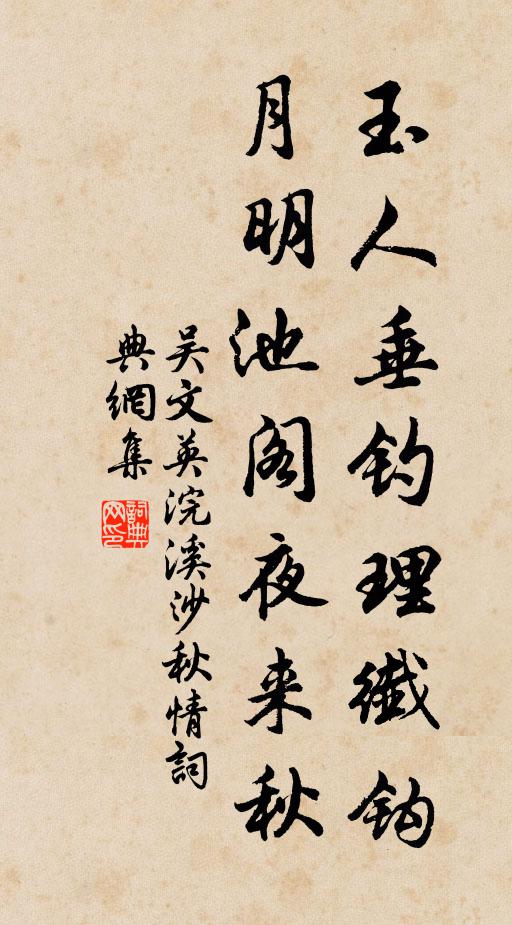 玉人垂钓理纖钩
月明池阁夜来秋
吴文英浣溪沙秋情詞
典網集
詞典网印